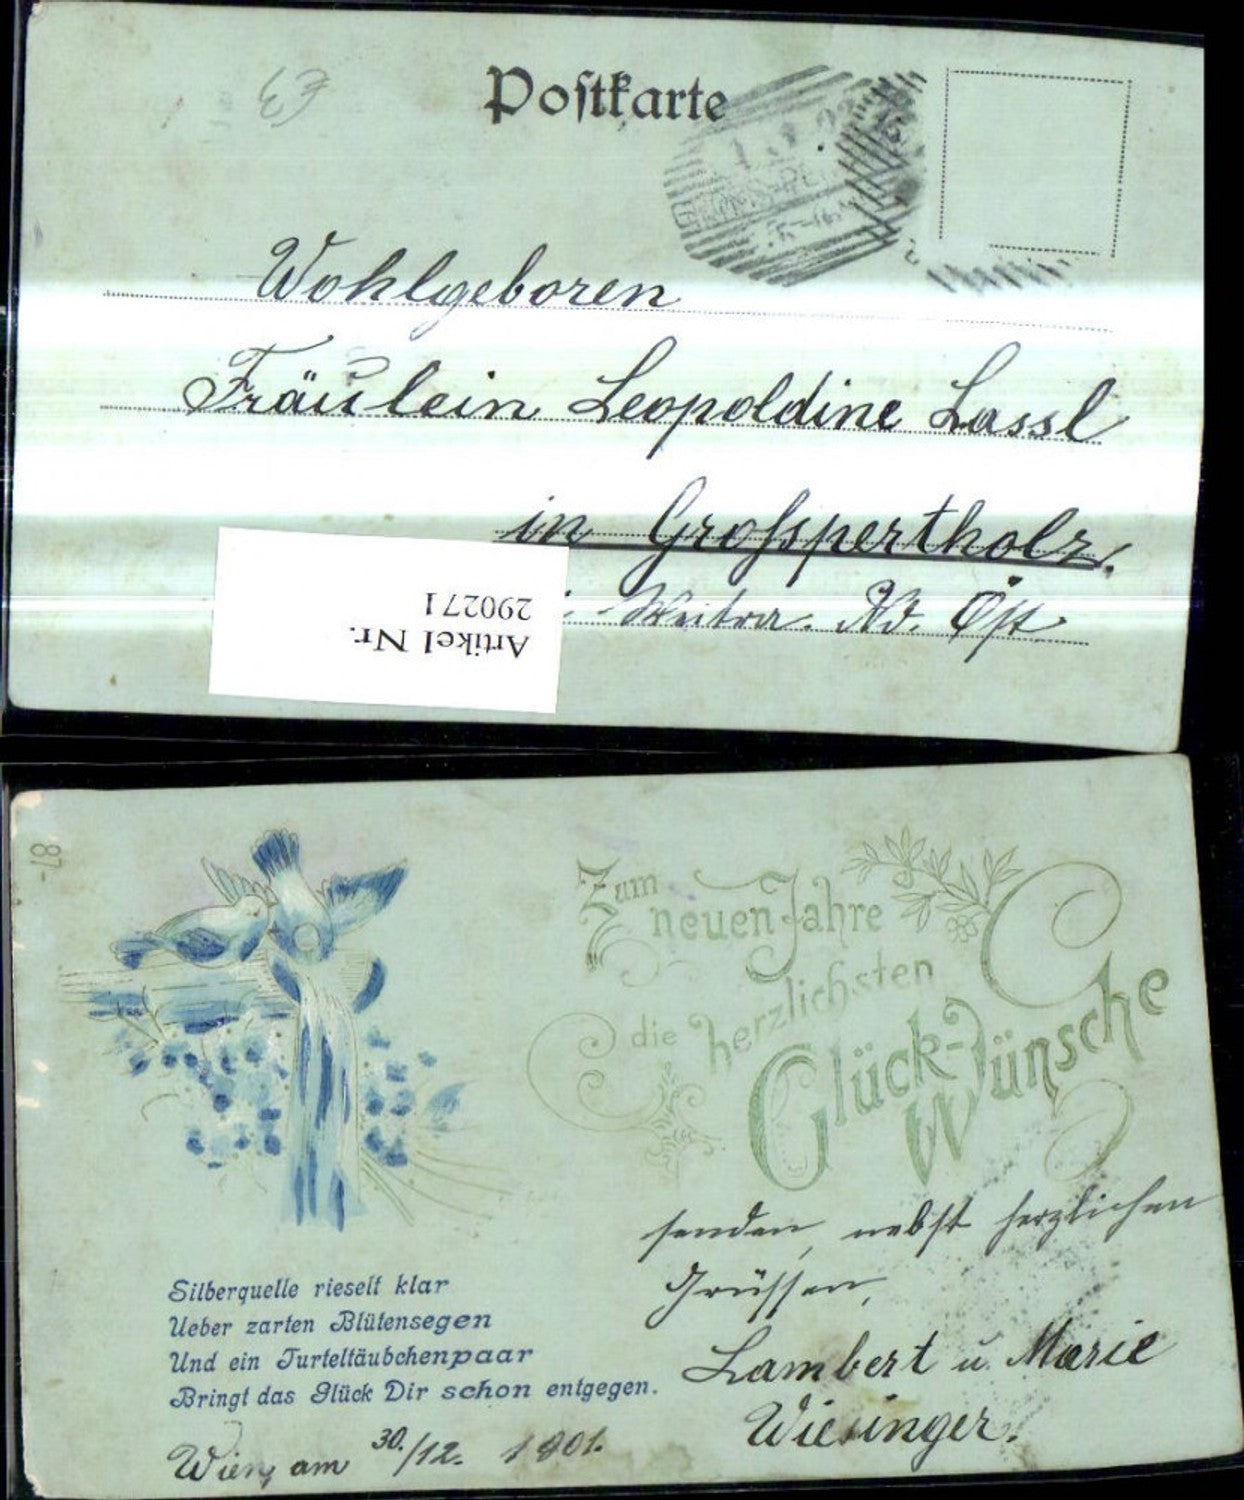 Postkarte
Wohlgeboren
Fräulein Leopoldine Lassl
in Grosspertholz.
Weitra. Nd. Öst
Artikel Nr.
290271
87-
Zum
neuen Jahre
die herzlichsten
Glück-Wünsche
senden, nebst herzlichen
Grüssen,
Lambert u. Marie
Wiesinger.
Silberquelle rieselt klar
Ueber zarten Blütensegen
Und ein Turteltäubchenpaar
Bringt das Glück Dir schon entgegen.
Wien, am 30./12. 1901.